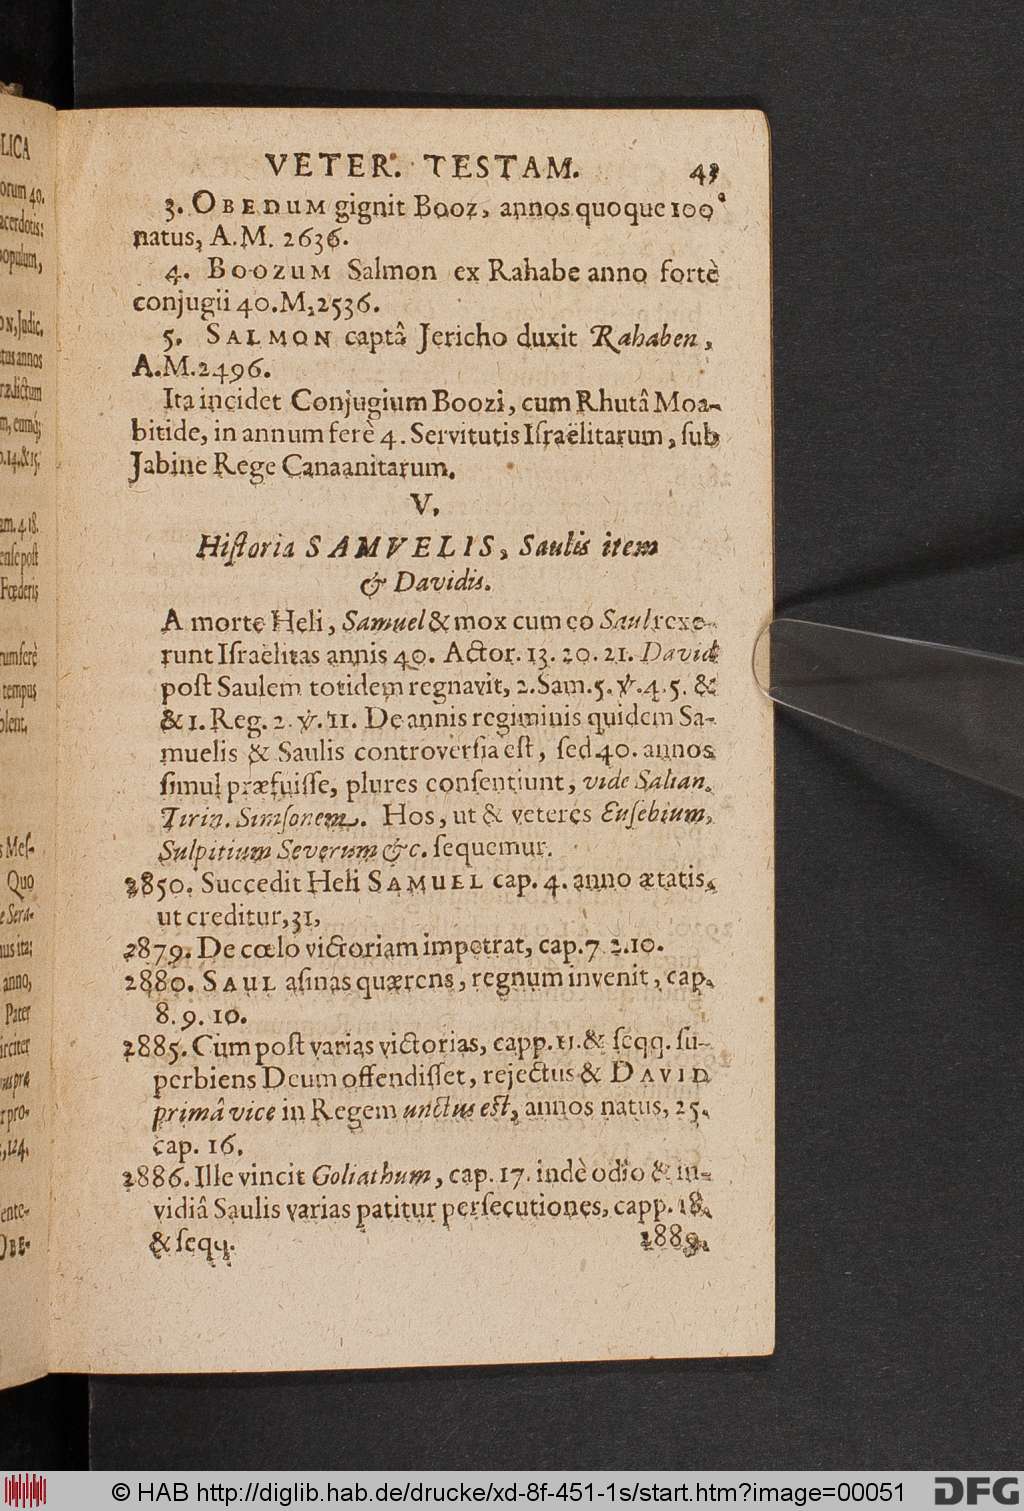 VETER. TESTAM. 43
3. OBEDUM gignit Booz, annos quoque 100
natus, A.M. 2636.
4. BOOZUM Salmon ex Rahabe anno fortè
conjugii 40.M.2536.
5. SALMON captâ Jericho duxit Rahaben,
A.M.2496.
Ita incidet Conjugium Boozi, cum Rhutâ Moa-
bitide, in annum ferè 4. Servitutis Iſraëlitarum, ſub
Jabine Rege Canaanitarum.
V.
Hiſtoria SAMVELIS, Saulis item
& Davidis.
A morte Heli, Samuel & mox cum eo Saul rexe-
runt Iſraëlitas annis 40. Actor. 13. 20. 21. David
poſt Saulem totidem regnavit, 2.Sam.5.℣.4.5. &
& 1. Reg. 2. ℣. 11. De annis regiminis quidem Sa-
muelis & Saulis controverſia eſt, ſed 40. annos
ſimul præfuiſſe, plures conſentiunt, vide Salian.
Tirin. Simſonem. Hos, ut & veteres Euſebium,
Sulpitium Severum &c. ſequemur.
2850. Succedit Heli SAMUEL cap. 4. anno ætatis,
ut creditur, 31,
2879. De cœlo victoriam impetrat, cap.7. 2.10.
2880. SAUL aſinas quærens, regnum invenit, cap.
8. 9. 10.
2885. Cùm poſt varias victorias, capp. 11. & ſeqq. ſu-
perbiens Deum offendiſſet, rejectus & DAVID
primâ vice in Regem unctus eſt, annos natus, 25.
cap. 16.
2886. Ille vincit Goliathum, cap. 17. indè odio & in-
vidiâ Saulis varias patitur perſecutiones, capp. 18.
& ſeqq. 2889.
LICA
orum 40.
acerdotis:
populum,
ON, Judic.
tus annos
rædictum
m, eumq́;
am. 4. 18.
enſe poſt
Fœderis
rum ferè
tempus
olent.
s Meſ-
Quo
e Sera-
nus ita;
anno,
Pater
irciter
rpro-
, 124.
ente-
OBE-
© HAB http://diglib.hab.de/drucke/xd-8f-451-1s/start.htm?image=00051
DFG